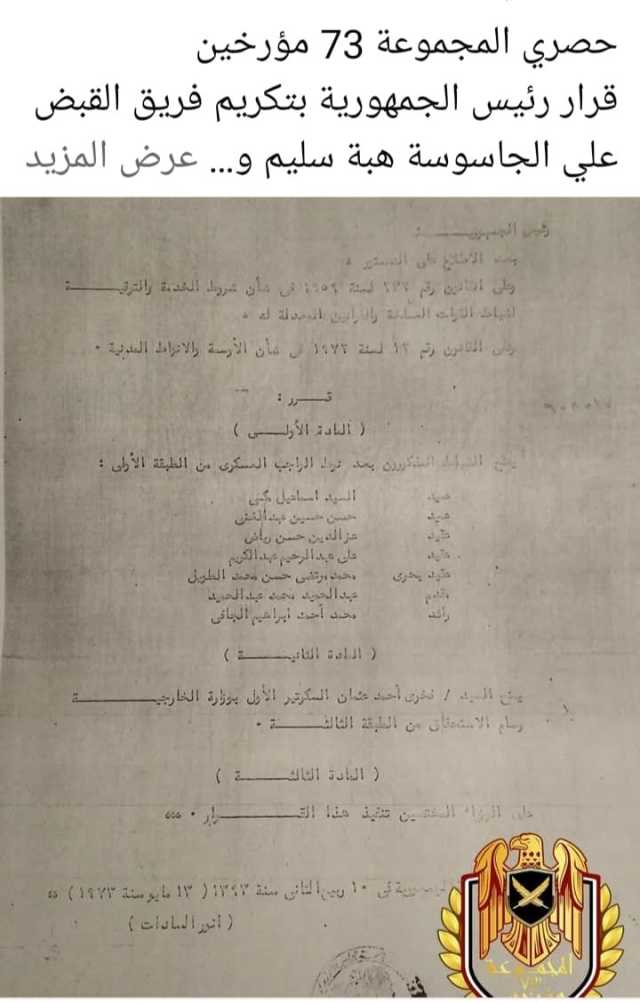 حصري المجموعة 73 مؤرخين
قرار رئيس الجمهورية بتكريم فريق القبض
علي الجاسوسة هبة سليم و... عرض المزيد
رئيس الجمهوريـــة :
بعد الاطلاع على الدستور ،
وعلى القانون رقم ٢٣٢ لسنة ١٩٥٩ فى شأن شروط الخدمة والترقيـــة
لضباط القوات المسلحة والقوانين المعدلة له ،
وعلى القانون رقم ١٢ لسنة ١٩٧٢ فى شأن الأوسمة والانواط المدنية ٠
قـــــرر :
( المادة الأولـــى )
يمنح الضباط المذكورون بعد نوط الواجب العسكرى من الطبقة الأولى :
عميد السيد اسماعيل
عميد حسن حسين
عقيد عزالدين حسن رياض
عقيد على عبدالرحيم عبدالكريم
عقيد بحرى محمد مرتضى حسن محمد الطويل
مقدم عبدالحميد محمد عبدالحميد
رائد محمد أحمد ابراهيم
( المادة الثانيــــة )
يمنح السيد / فخرى أحمد عثمان السكرتير الأول بوزارة الخارجيـــــة
وسام الاستحقاق من الطبقة الثالثــــة ٠
( المادة الثالثــــــة )
على الوزراء المختصين تنفيذ هذا القـــــــرار ٠
١٠ ربيع الثانى سنة ١٣٩٣ ( ١٣ مايو سنة ١٩٧٣ )
( أنور السادات )
المجموعة
٧٣